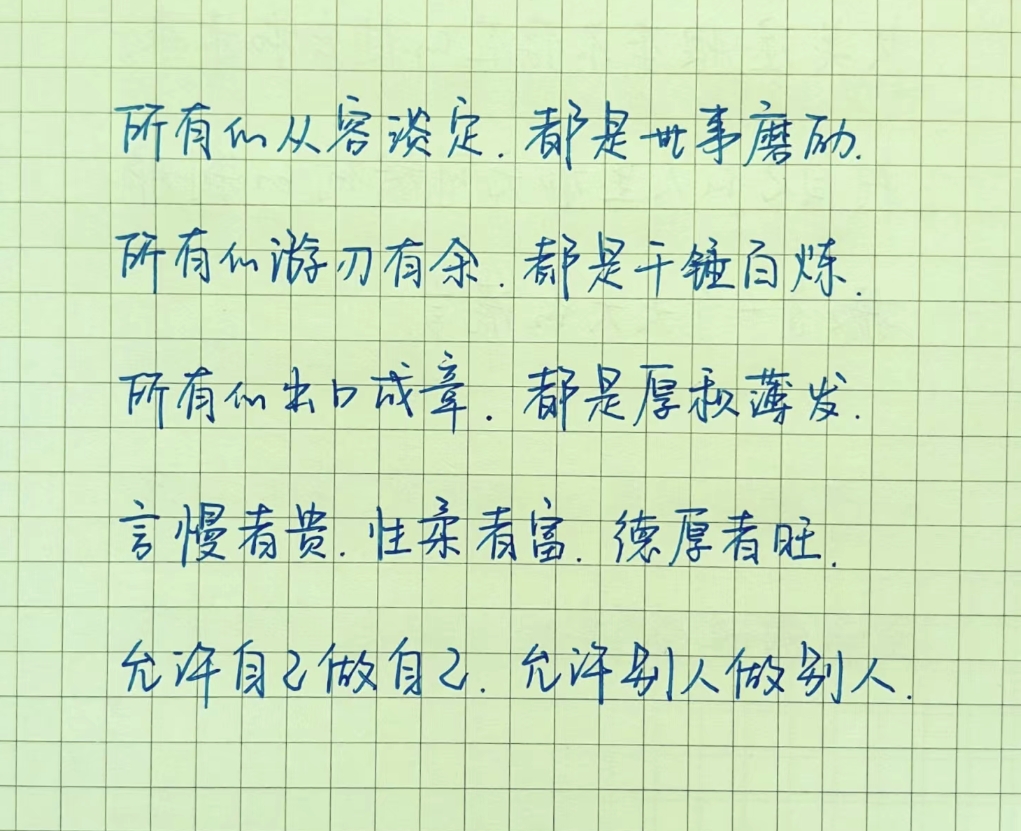 所有的从容淡定.都是世事磨励.
所有的游刃有余.都是千锤百炼.
所有的出口成章.都是厚积薄发.
言慢者贵.性柔者富.德厚者旺.
允许自己做自己.允许别人做别人.